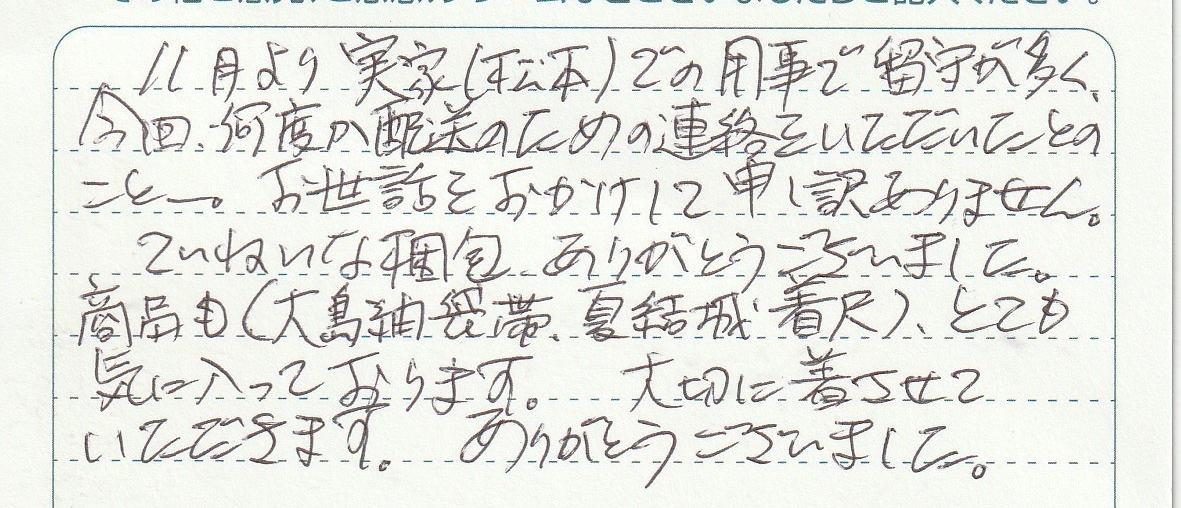 11月より実家(松本)での用事で留守が多く、
今回、何度か配送のための連絡をいただいたとの
こと―。お世話をおかけして申し訳ありません。
ていねいな梱包、ありがとうございました。
商品も(大島紬袋帯、夏結城着尺)、とても
気に入っております。 大切に着させて
いただきます。 ありがとうございました。